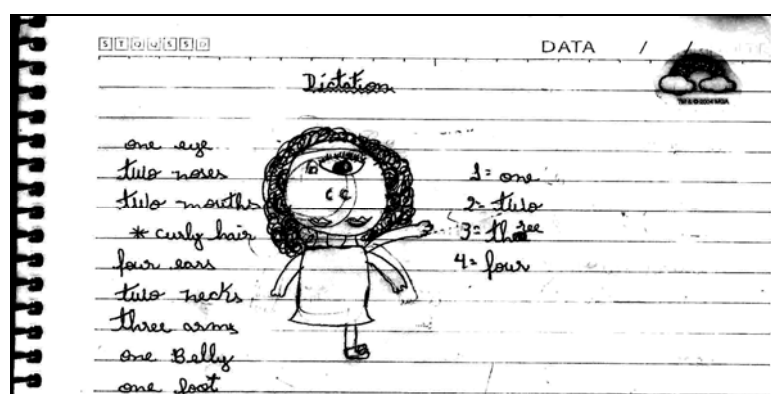 S T Q Q S S D
DATA / /
TM & © 2004 MGA
Dictation
one eye
two noses
two mouths
* curly hair
four ears
two necks
three arms
one Belly
one foot
1= one
2= two
3= three
4= four